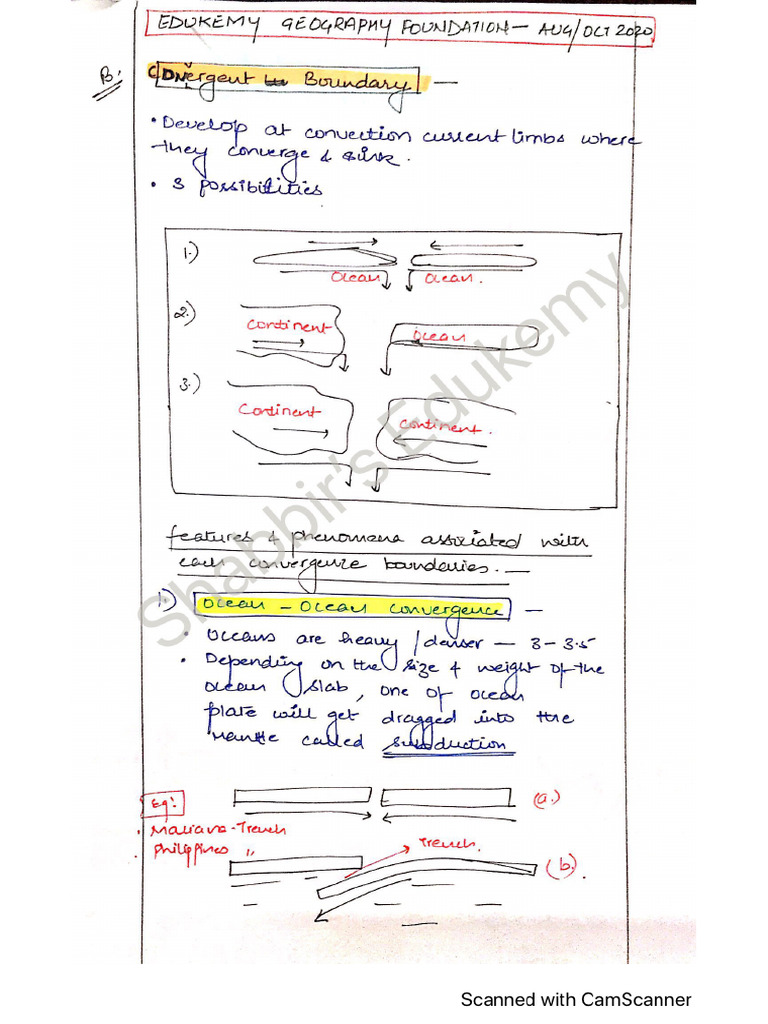 EDUKEMY GEOGRAPHY FOUNDATION - AUG/OCT 2020
B:
Convergent Boundary —
• Develop at convection current limbs where
they converge & sink.
• 3 possibilities
1.)
Ocean Ocean.
2.)
Continent Ocean
3.)
Continent Continent.
features & phenomena associated with
each convergence boundaries. —
1.) Ocean - Ocean convergence —
• Oceans are heavy/denser — 3-3.5
• Depending on the size & weight of the
ocean slab, one of ocean
plate will get dragged into the
Mantle called subduction
Eg:
(a.)
• Mariana-Trench
• Philippines "
Trench.
(b).
Shabbir's Edukemy
Scanned with CamScanner